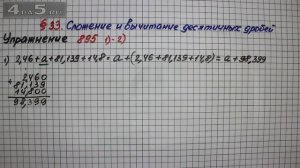 4АО5.RU
§ 33 Сложение и вычитание десятичных дробей
Упражнение 895 1)-2)
1) 2,46+a+81,139+14,8= a+(2,46+81,139+14,8)= a+98,399
2,460
+ 81,139
14,800
98,399